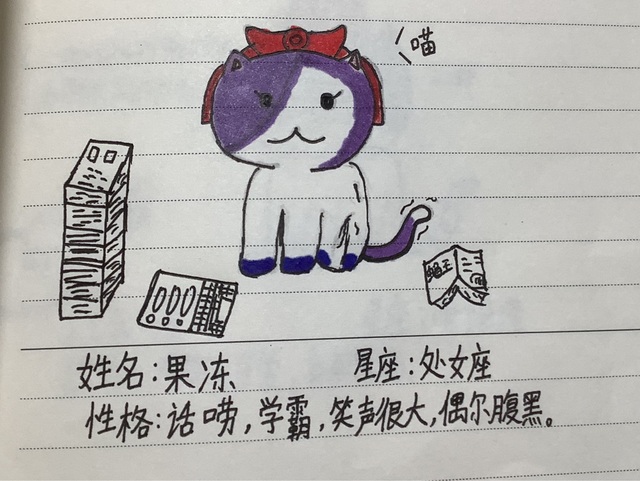 喵
姓名：果冻 星座：处女座
性格：话唠，学霸，笑声很大，偶尔腹黑。